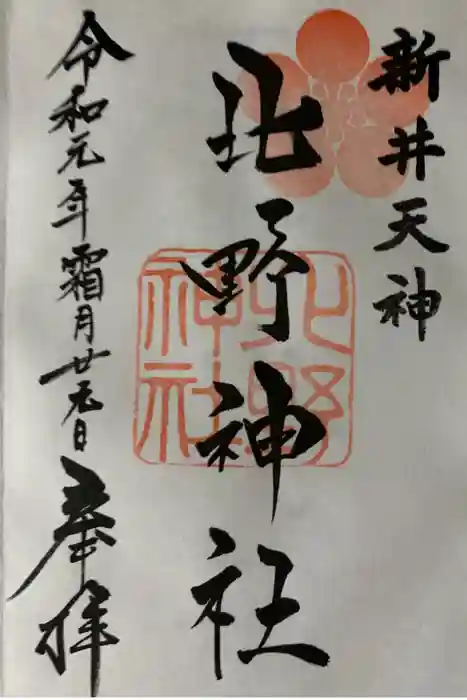 新井天神
北野神社
北野
神社
令和元年霜月廿元日
奉拝